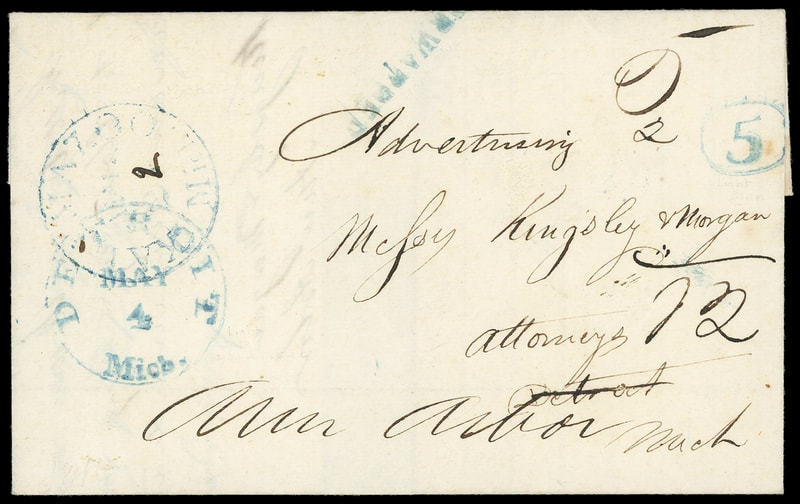 Advertising 2
5
2
Messrs Kingsley & Morgan
12
Attorneys
Detroit
Ann Arbor Mich
DETROIT
MAY
4
Mich.